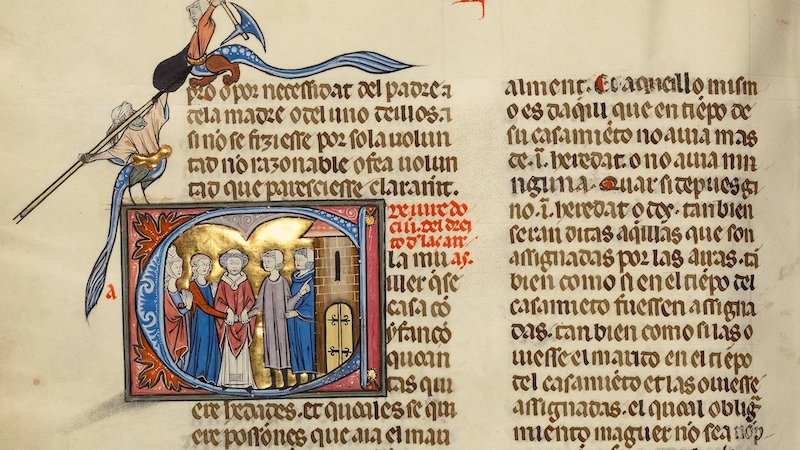 pro o por necessidat del padre a
de la madre o del uno deillos. a
si no se fiziesse por sola uolun
tad no razonable o fea uolun
tad que paresciesse clarament.
a
la mu
iller q̃se
casa cõ
yfançõ
quoan
tas qui
ere hedades. et quoales se qui
ere possiones que aia el mari
as.
alment. Et aqueillo mism
o es daqui que en tiẽpo de
su casamiẽto no auia mas
de .i. heredat o no auia nin
guna. Quar si depues gi
no .i. heredat o dos. tan bien
seran ditas aqillas que son
assignadas por las arras. tã
bien como si en el tiẽpo del
casamiẽto fuessen assigna
das. tan bien como si las o
uiesse el marito en el tiẽpo
del casamiẽto et las ouiesse
assignadas. el quoal oblig
miento maguer no sea nop